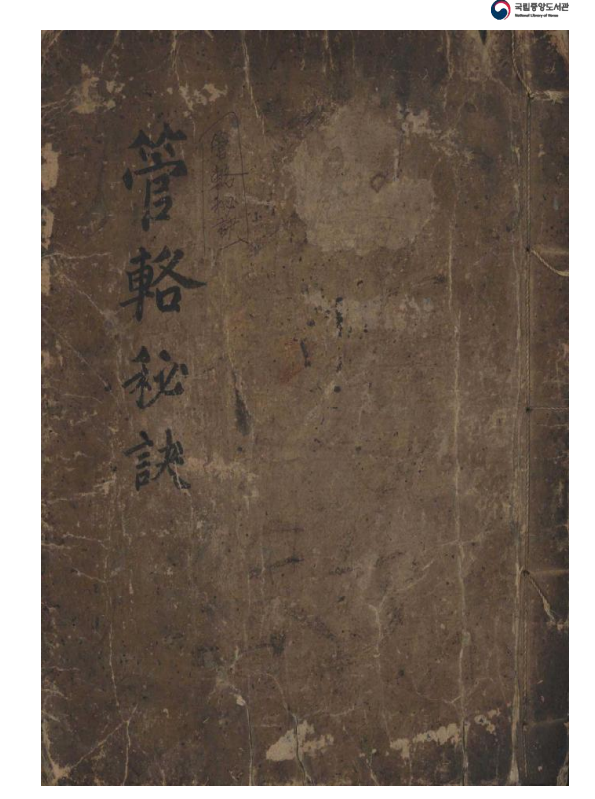 국립중앙도서관
National Library of Korea
管輅秘訣
管輅秘訣